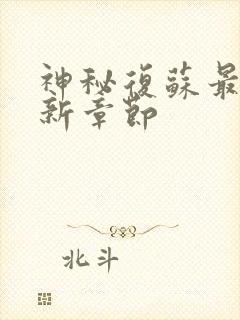 神秘復蘇最
新章節
北斗